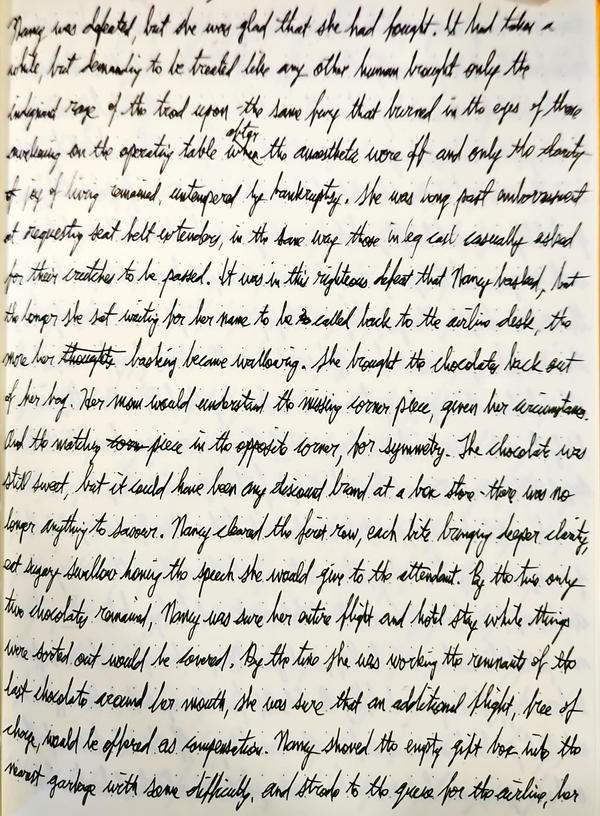 Nancy was defeated, but she was glad that she had fought. It had taken a
while, but demanding to be treated like any other human brought only the
indignant rage of the trod upon - the same fury that burned in the eyes of those
awakening on the operating table after when the anaesthetic wore off and only the clarity
of joy of living remained, untempered by bankruptcy. She was long past embarrassment
at requesting seat belt extenders, in the same way those in leg cast casually asked
for their crutches to be passed. It was in this righteous defeat that Nancy basked, but
the longer she sat waiting for her name to be called back to the airline desk, the
more her thoughts basking became wallowing. She brought the chocolates back out
of her bag. Her mom would understand the missing corner piece, given her circumstances.
And the matching corn piece in the opposite corner, for symmetry. The chocolate was
still sweet, but it could have been any discount brand at a box store - there was no
longer anything to savour. Nancy cleared the first row, each bite bringing deeper clarity,
each sugary swallow honing the speech she would give to the attendant. By the time only
two chocolates remained, Nancy was sure her entire flight and hotel stay while things
were sorted out would be covered. By the time she was working the remnants of the
last chocolate around her mouth, she was sure that an additional flight, free of
charge, would be offered as compensation. Nancy shoved the empty gift box into the
nearest garbage with some difficulty, and strode to the queue for the airline, her